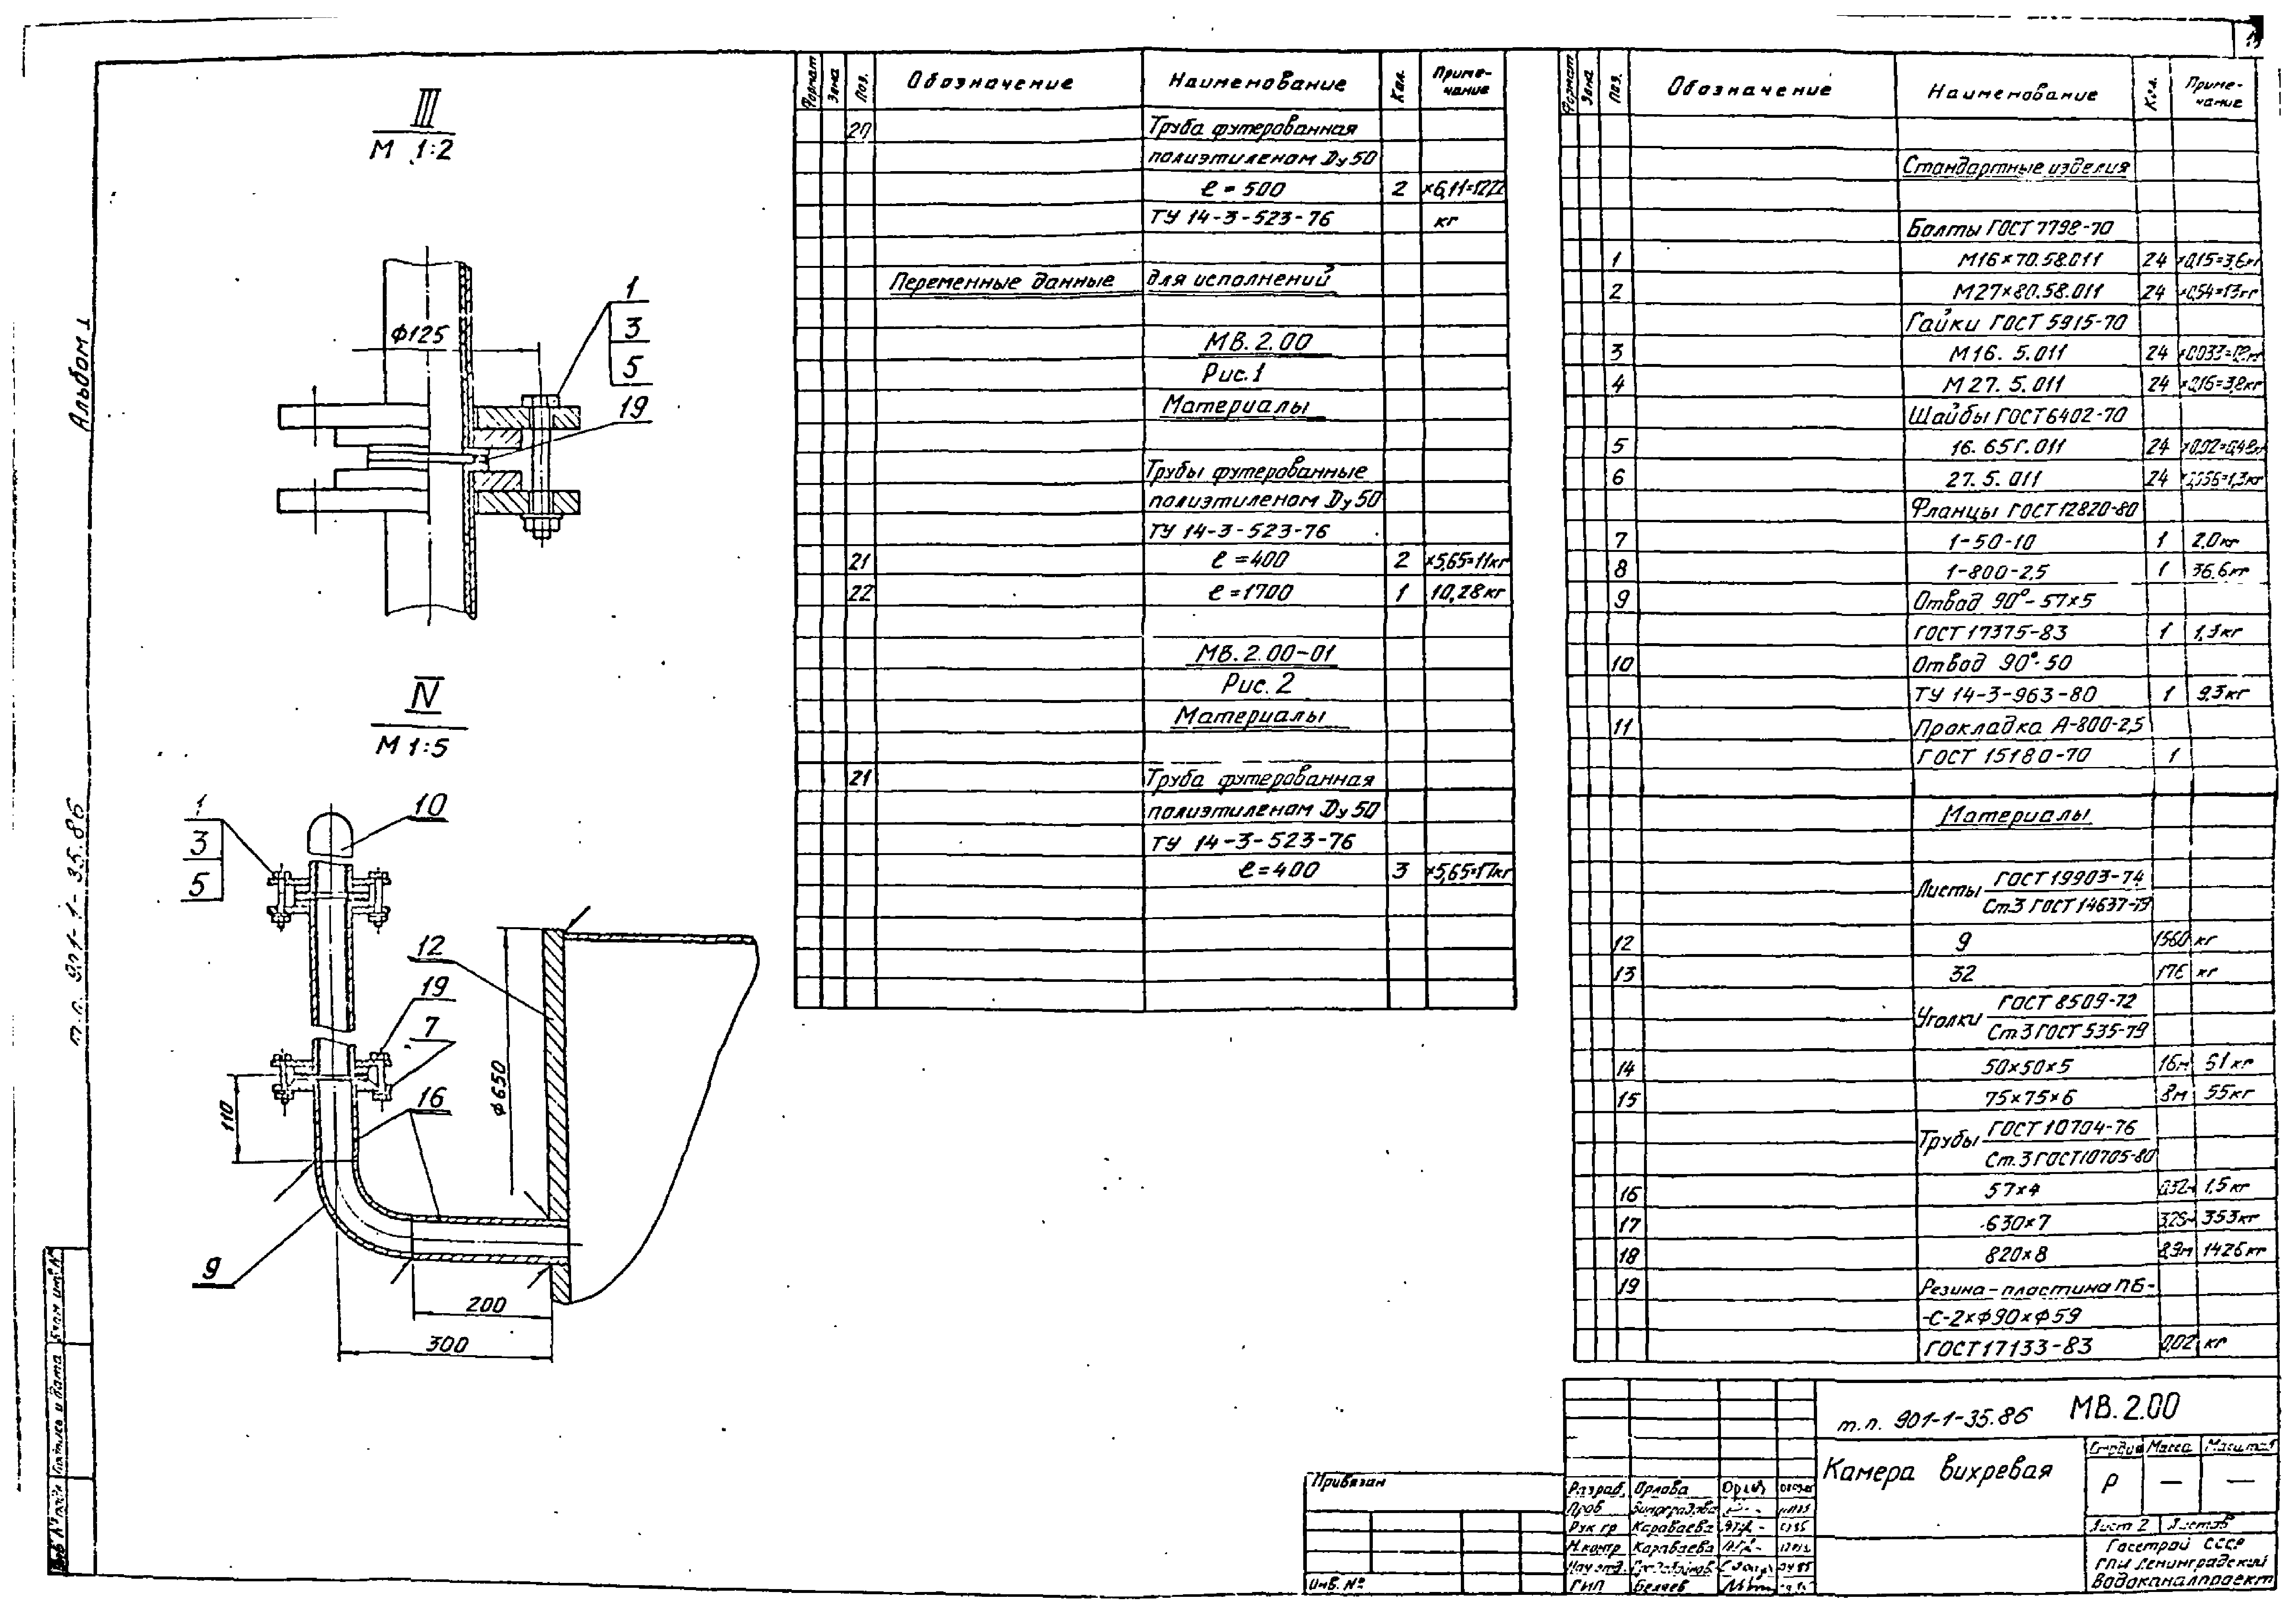 Альбом 1
т.п. 901-1-35.86
III
М 1:2
ϕ125
1
3
5
19
IV
М 1:5
1
3
5
10
12
19
7
16
9
110
ϕ650
200
300
Формат Зона Поз. Обозначение Наименование Кол. Приме-
чание
20 Труба футерованная
полиэтиленом Ду 50
ℓ = 500 2 ×6,11=12,22
ТУ 14-3-523-76 кг
Переменные данные для исполнений
МВ.2.00
Рис.1
Материалы
Трубы футерованные
полиэтиленом Ду 50
ТУ 14-3-523-76
21 ℓ = 400 2 ×5,65=11кг
22 ℓ = 1700 1 10,28кг
МВ.2.00-01
Рис. 2
Материалы
21 Труба футерованная
полиэтиленом Ду 50
ТУ 14-3-523-76
ℓ = 400 3 ×5,65=17кг
Формат Зона Поз. Обозначение Наименование Кол. Приме-
чание
Стандартные изделия
Болты ГОСТ 7798-70
1 М16×70.58.011 24 ×0,15=3,6кг
2 М27×80.58.011 24 ×0,54=13кг
Гайки ГОСТ 5915-70
3 М16. 5.011 24
4 М27. 5.011 24 ×0,16=3,8кг
Шайбы ГОСТ 6402-70
5 16. 65Г.011 24 ×0,02=0,48кг
6 27. 5. 011 24
Фланцы ГОСТ 12820-80
7 1-50-10 1 2,0кг
8 1-800-2,5 1 36,6кг
9 Отвод 90°-57×5
ГОСТ 17375-83 1 1,3кг
10 Отвод 90°-50
ТУ 14-3-963-80 1 9,3кг
11 Прокладка А-800-2,5
ГОСТ 15180-70 1
Материалы
Листы ГОСТ 19903-74
Ст3 ГОСТ 14637-79
12 9 1560 кг
13 32 176 кг
Уголки ГОСТ 8509-72
Ст3 ГОСТ 535-79
14 50×50×5 16м 61кг
15 75×75×6 8м 55кг
Трубы ГОСТ 10704-76
Ст.3 ГОСТ 10705-80
16 57×4 0,32м 1,5кг
17 630×7 3,25м 353кг
18 820×8 8,9м 1426кг
19 Резина-пластина ПБ-
-С-2×ϕ90×ϕ59
ГОСТ 17133-83 0,02 кг
т.п. 901-1-35.86 МВ.2.00
Камера вихревая
Стадия Масса Масштаб
Р — —
Лист 2 Листов
Госстрой СССР
ГПИ Ленинградский
Водоканалпроект
Привязан
Инв. №
Разраб. Орлова
Пров. Виноградова
Рук гр Караваева
Н.контр Караваева
Нач отд.
ГИП Беляев
Подпись и дата